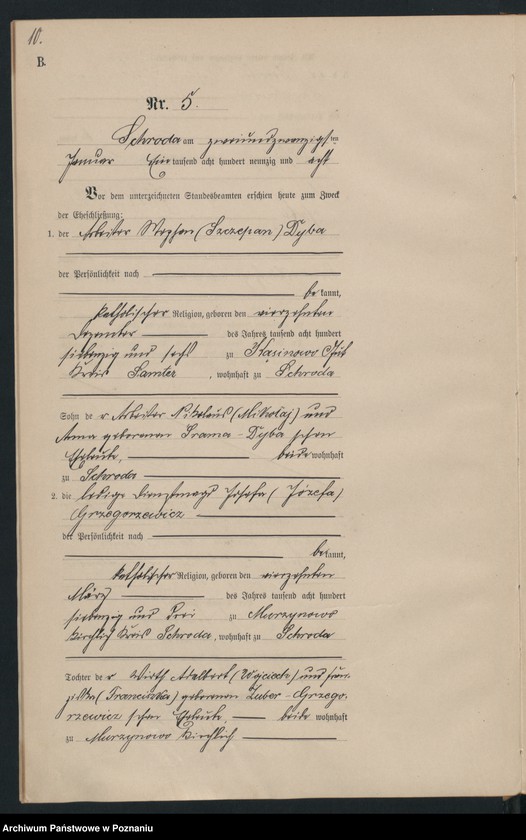 10.
B.
Nr. 5.
Schroda am zweiundzwanzigsten
Januar Ein tausend acht hundert neunzig und acht
Vor dem unterzeichneten Standesbeamten erschien heute zum Zweck
der Eheschließung:
1. der Arbeiter Stephan (Szczepan) Dyba
der Persönlichkeit nach
be kannt,
katholischer Religion, geboren den vierzehnten
Dezember des Jahres tausend acht hundert
siebenzig und sechs zu Kasinowo Gut
Kreis Samter, wohnhaft zu Schroda
Sohn der Arbeiter Nikolaus (Mikołaj) und
Anna geborenen Srama-Dyba'schen
Eheleute, beide wohnhaft
zu Schroda
2. die ledige Dienstmagd Josefa (Józefa)
Grzegorzewicz
der Persönlichkeit nach
be kannt,
katholischer Religion, geboren den vierzehnten
März des Jahres tausend acht hundert
siebenzig und drei zu Murzynowo
kirchlich Kreis Schroda, wohnhaft zu Schroda
Tochter der Wirth Adalbert (Wojciech) und Fran-
ziska (Franciszka) geborenen Zuber-Grzego-
rzewicz'schen Eheleute, beide wohnhaft
zu Murzynowo kirchlich
Archiwum Państwowe w Poznaniu